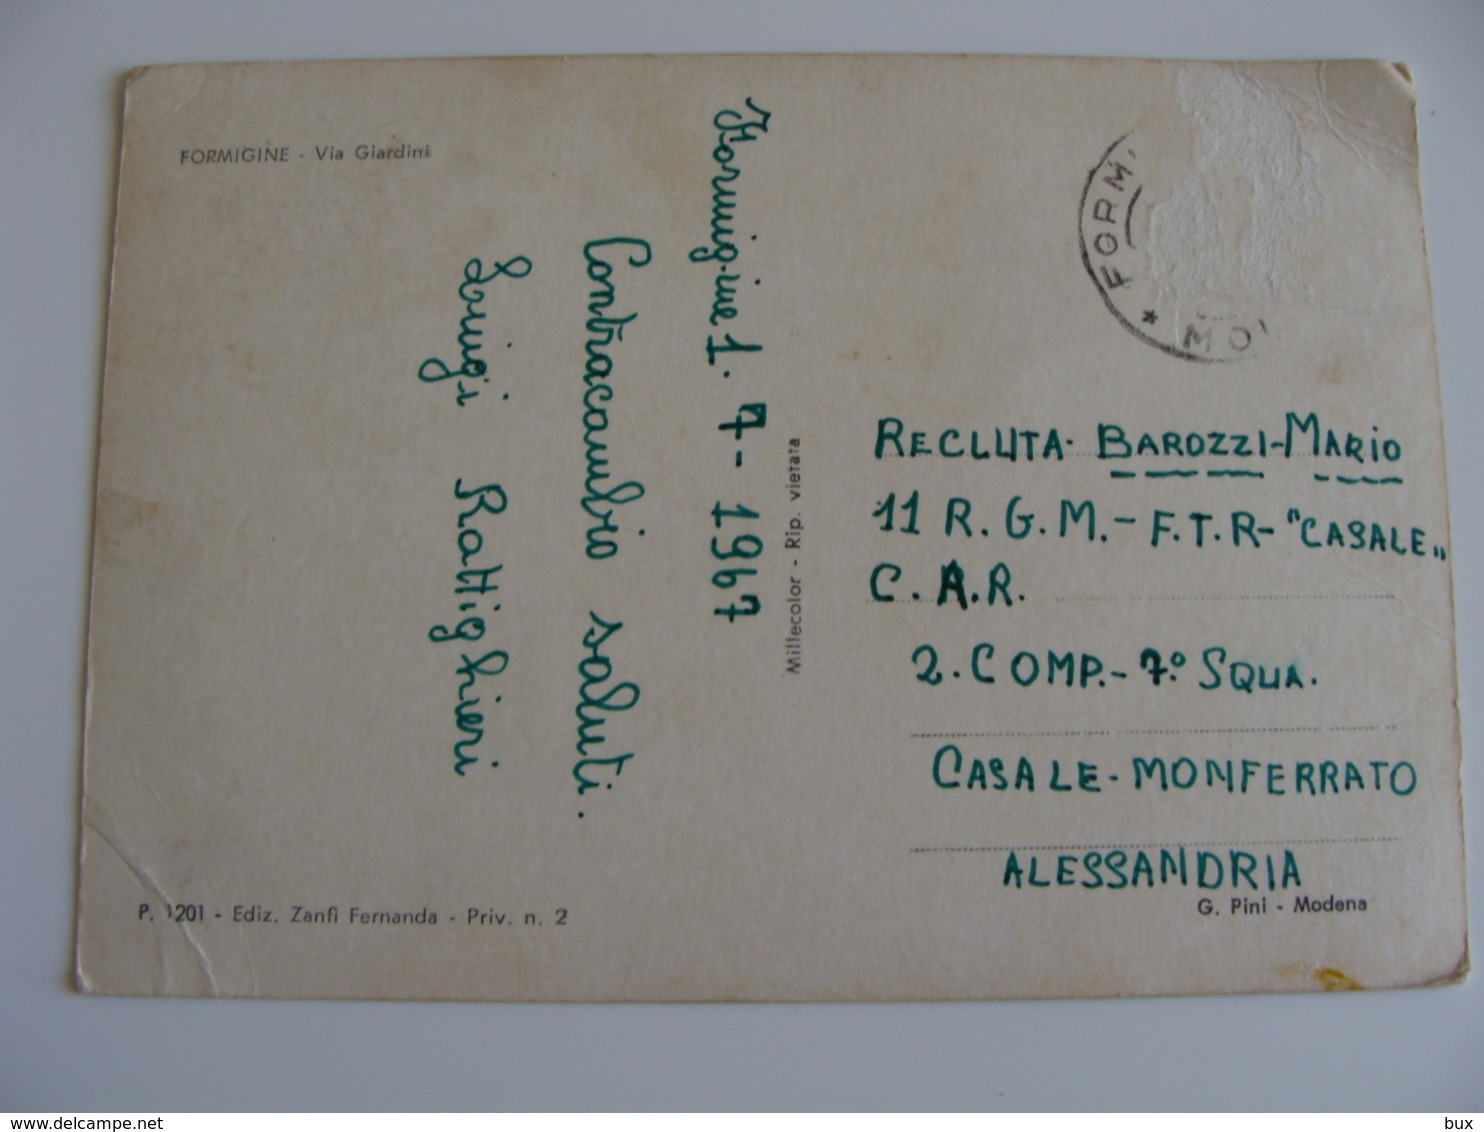 FORMIGINE - Via Giardini
Formigine 1. 7 - 1967
Contracambio saluti.
Luigi Rattighieri
Millecolor - Rip. vietata
FORM
* MO
RECLUTA BAROZZI-MARIO
11 R.G.M.- F.T.R- "CASALE„
C.A.R.
2. COMP.- 7° SQUA.
CASALE-MONFERRATO
ALESSANDRIA
G. Pini - Modena
P. 1201 - Ediz. Zanfi Fernanda - Priv. n. 2
www.delcampe.net
bux